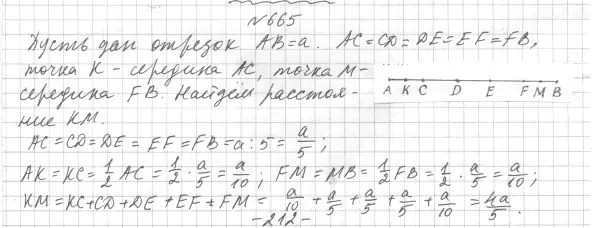 №665
Пусть дан отрезок AB=a. AC=CD=DE=EF=FB,
точка K - середина AC, точка M-
середина FB. Найдём расстоя-
ние KM.
A K C D E F M B
AC=CD=DE=EF=FB=a:5=a/5;
AK=KC=1/2 AC=1/2·a/5=a/10; FM=MB=1/2 FB=1/2·a/5=a/10;
KM=KC+CD+DE+EF+FM=a/10+a/5+a/5+a/5+a/10=4a/5.
-212-